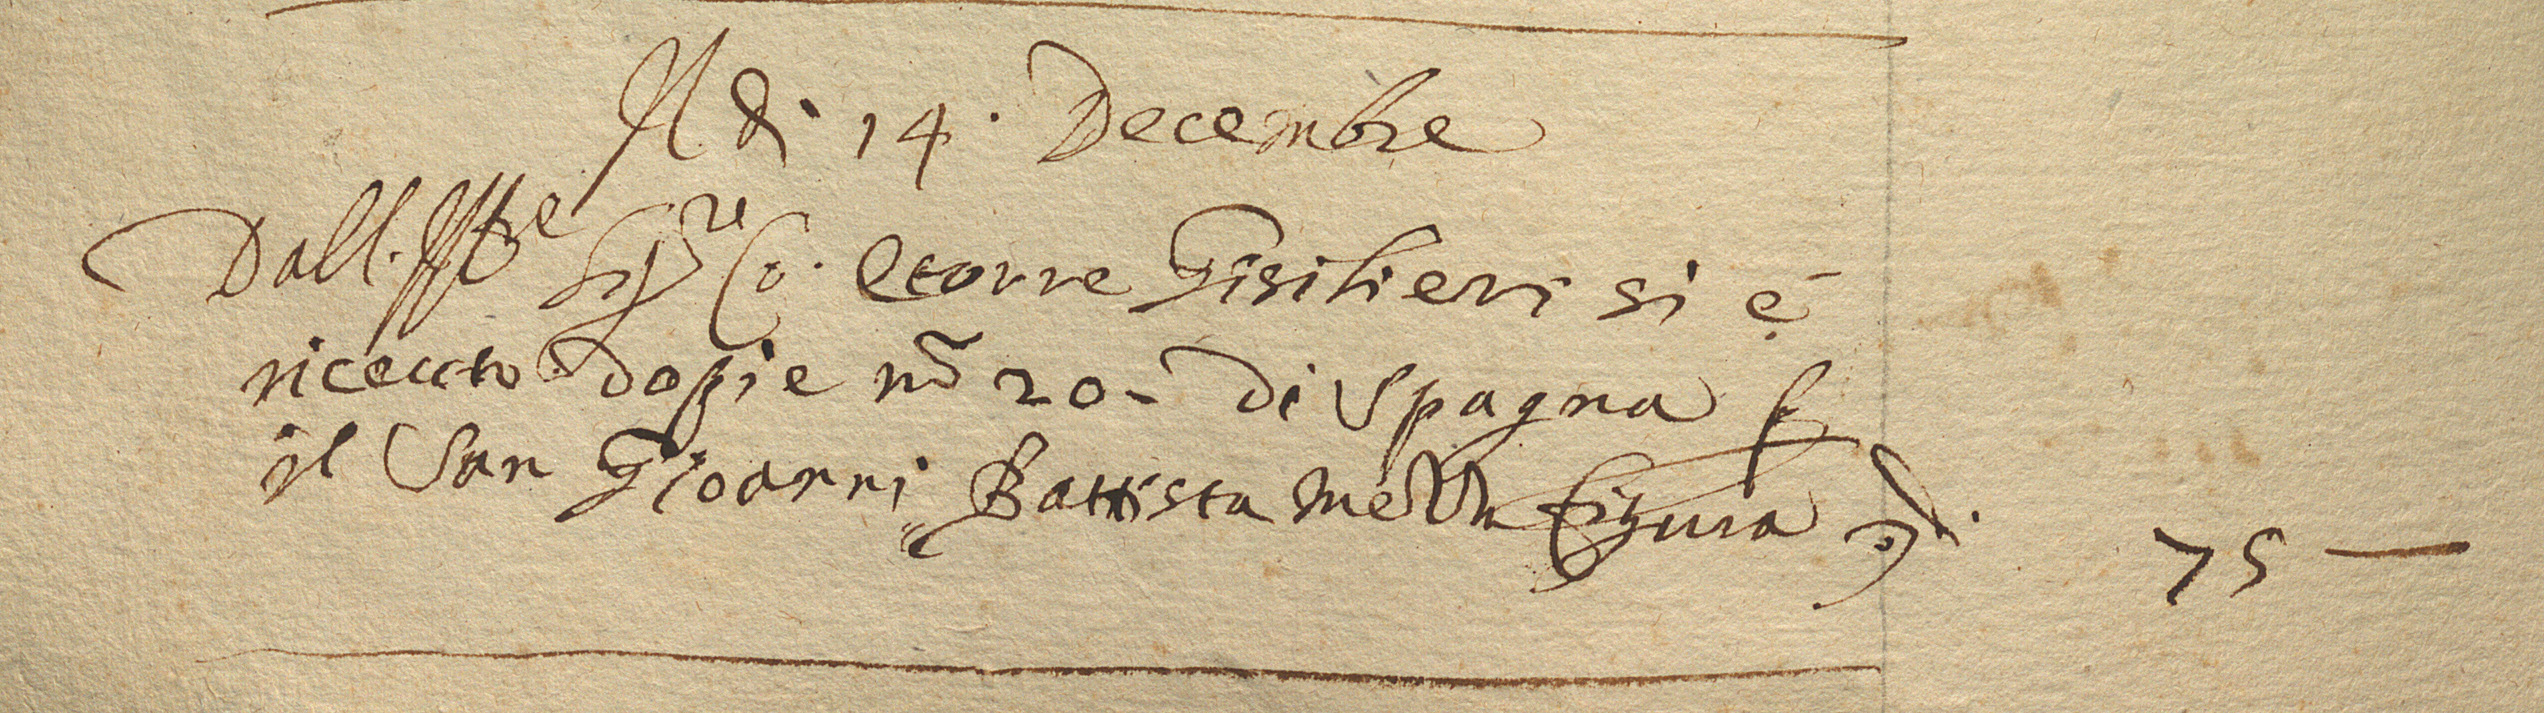 Adi 14. Decembre
Dall. Ill.re Sig.re Co. Ettorre Gisilieri si é
riceuto dopie nō 20- di Spagna
il San Gioanni Battista Meza figura
75 —